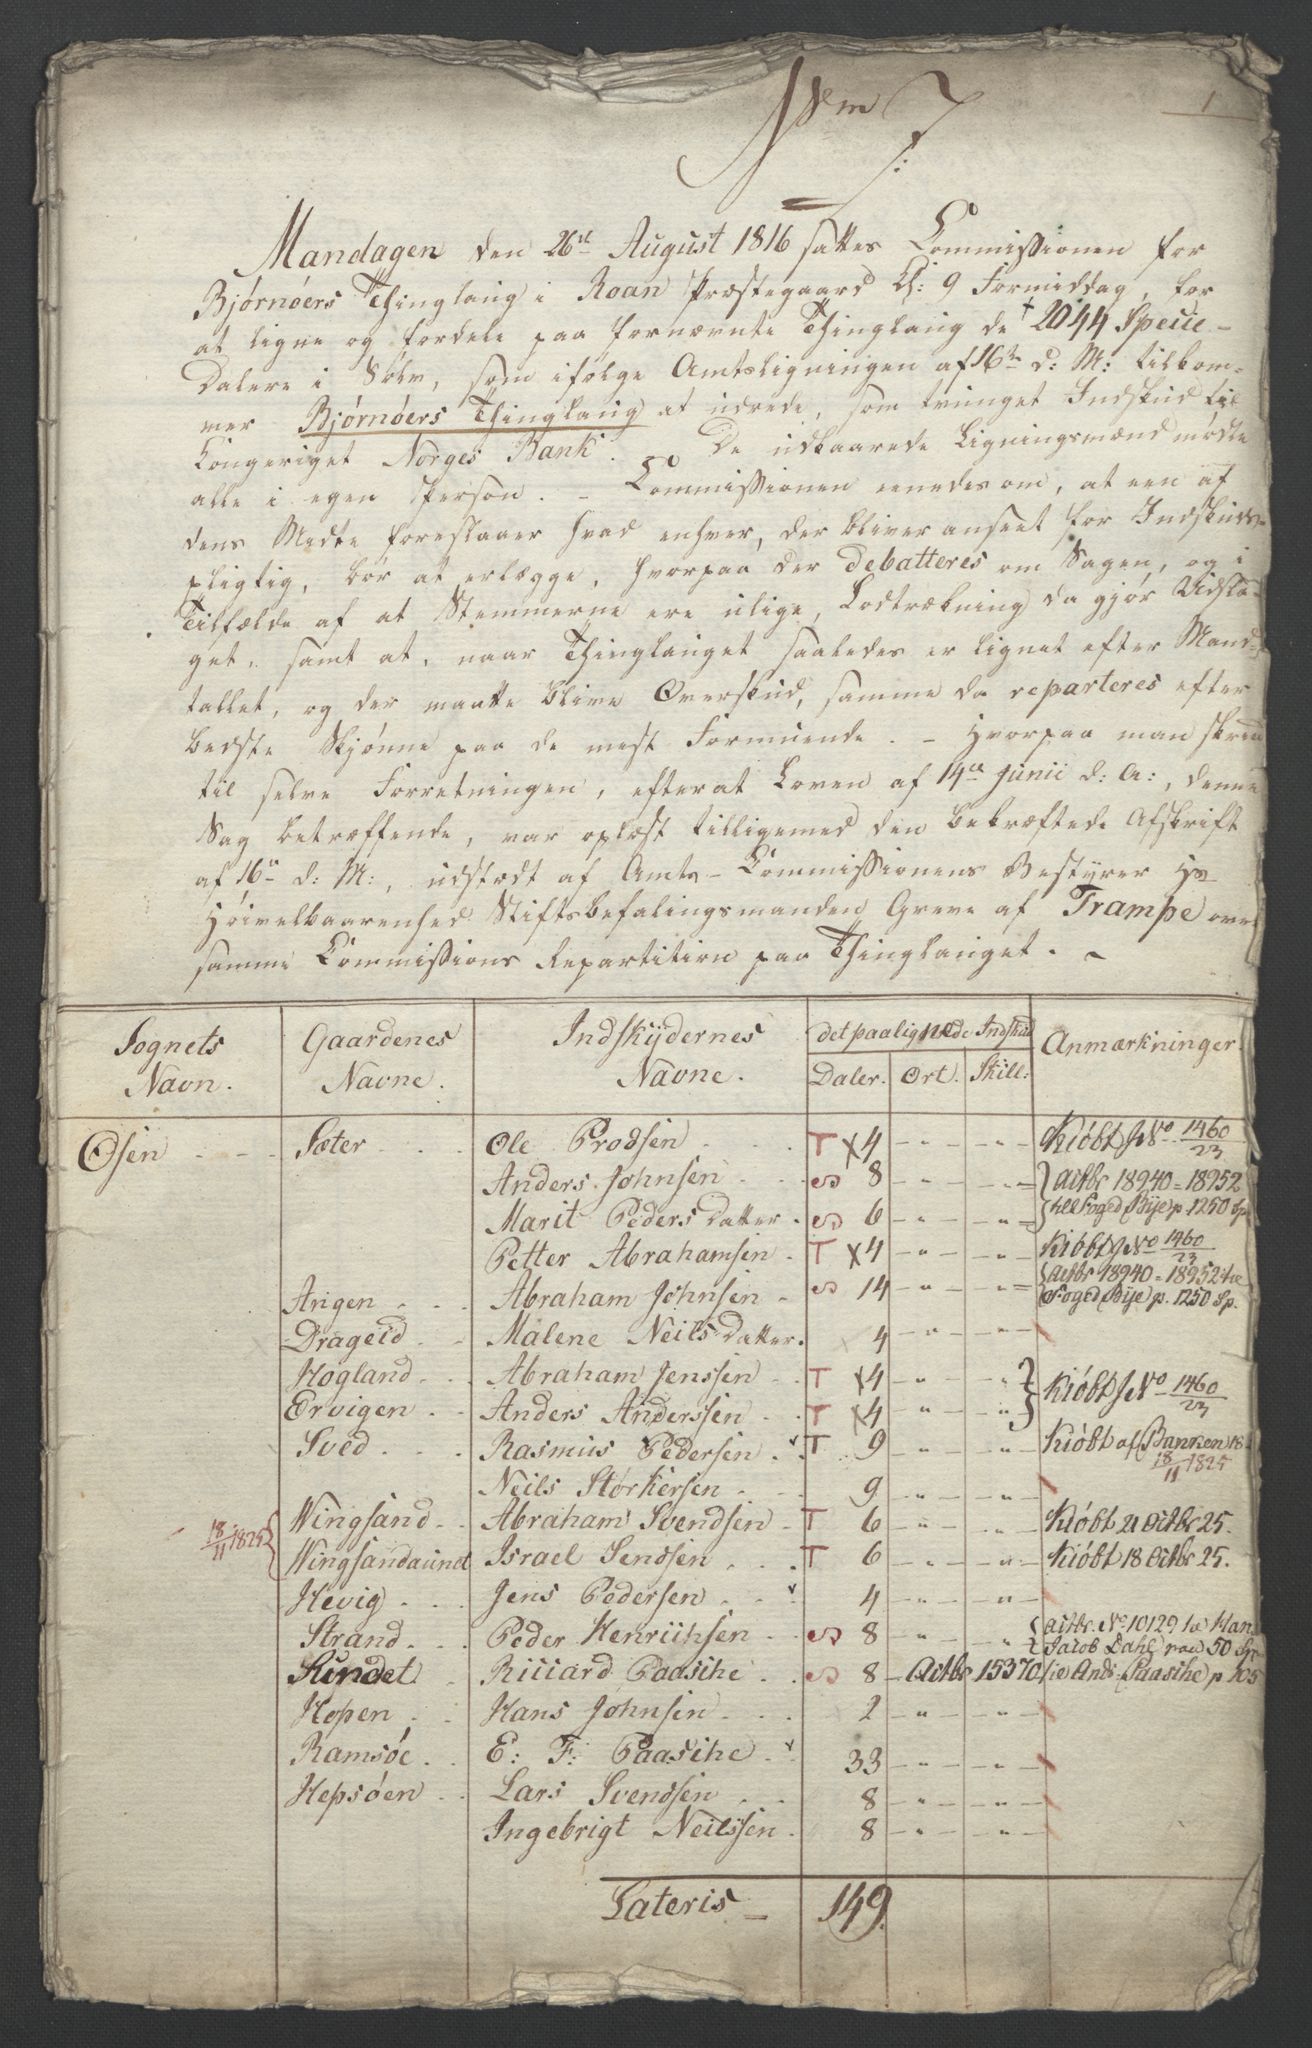 Nem 7
1
Mandagen den 26de August 1816 sattes Commissionen for
Bjørnøers Thinglaug i Roan Præstegaard Kl: 9 Formiddag, for
at ligne og fordele paa fornævnte Thinglaug de 2044 Specie-
Dalere i Sølv, som ifølge Amtsligningen af 16de d: M: tilkom-
mer Bjørnøers Thinglaug at udrede, som tvunget Indskud til
Kongeriget Norges Bank. De udkaarede Ligningsmænd mødte
alle i egen Person. - Commissionen eenedes om, at een af
dens Midte foreslaaer hvad enhver, der bliver anseet for Indskuds-
pligtig, bør at erlægge, hvorpaa der debatteres om Sagen, og i
Tilfælde af at Stemmerne ere ulige, Lodtrækning da gjør Udsla-
get, samt at, naar Thinglauget saaledes er lignet efter Mand-
tallet, og der maatte blive Overskud, samme da reparteres efter
bedste Skjønne paa de mest Formuende. - Hvorpaa man skred
til selve Forretningen, efterat Loven af 14de Junii d: A:, denne
Sag betræffende, var oplæst tilligemed den bekræftede Afskrift
af 16de d: M:, udstædt af Amts-Commissionens Bestyrer Hs
Høivelbaarenhed Stiftsbefalingsmanden Greve af Trampe over
samme Commissions Repartition paa Thinglauget. -
Sognets Navn. Gaardenes Navne. Indskydernes Navne. det paalignede Indskud Anmærkninger.
Daler. Ort. Skill:
Osen - - - Sæter - - Ole Brodsen - T x 4 - " - " - Kiøbt No 1460/23
Anders Johnsen - - - S 8 - " - " - } Actbr 18940 = 18952
Marit Peders Datter - S 6 - " - " = } til Foged Bije p. 1250 Sp
Petter Abrahamsen - T x 4 - " - " Kiøbt No 1460/23
Angen - - - Abraham Johnsen - S 14 - " - " = { Actbr 18940 = 18952 til
Foged Bije p. 1250 Sp.
Drageid - - Malene Neils Datter. 4 - " - " -
Hogland - - Abraham Jenssen - T x 4 - " - " }
Ervigen - - Anders Anderssen - T x 4 - " - " } Kiøbt No 1460/23
Sved - - - Rasmus Pedersen - T 9 - " - " - Kiøbt af Banken 18
18/11 1825
Neils Størkersen - - 9 - " - " -
18/11 1825 { Wingsand - - Abraham Svendsen - T 6 - " - " - Kiøbt 21 Octbr 25.
Wingsandaund Israel Sendsen - - T 6 - " - " - Kiøbt 18 Octbr 25.
Hevig - - - Jens Pedersen - - 4 - " - " -
Strand - - Peder Henrichsen - S 8 - " - " { Actbr. No 10129 til Han
Jacob Dahl 50 Sp
Sundet - Riccard Paasche - S 8 - Actbr 15370 til And: Paasche p 105
Hopen - - Hans Johnsen - - - 2 - " - " -
Ramsøe - - E: F: Paasche - 33 - " - " -
Hepsøen - - Lars Svendsen - - 8 - " - " -
Ingebrigt Neilssen - 8 - " - " -
Lateris - 149.